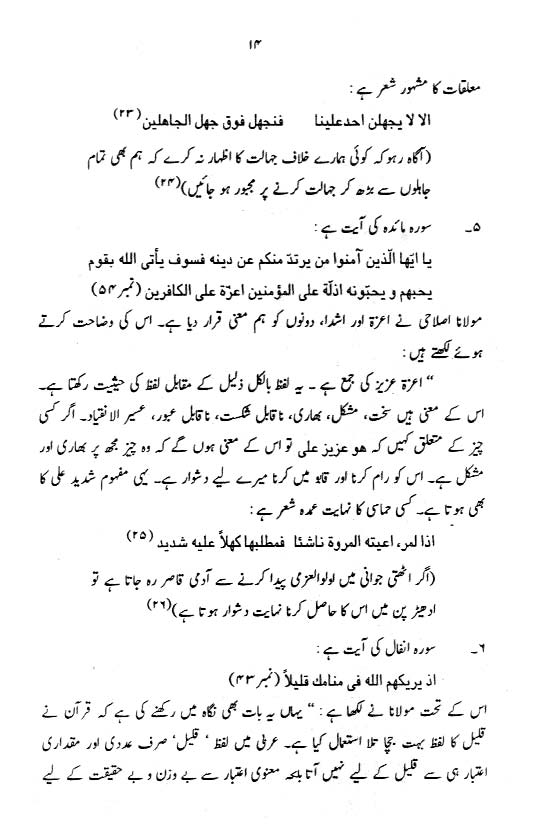 ۱۴
معلقات کا مشہور شعر ہے :
الا لا یجهلن احدعلینا فنجهل فوق جهل الجاهلین (۲۳)
(آگاہ رہو کہ کوئی ہمارے خلاف جہالت کا اظہار نہ کرے کہ ہم بھی تمام
جاہلوں سے بڑھ کر جہالت کرنے پر مجبور ہو جائیں)(۲۴)
۵۔ سورہ مائدہ کی آیت ہے :
یا ایّها الّذین آمنوا من یرتدّ منکم عن دینه فسوف یأتی الله بقوم
یحبهم و یحبّونه اذلّة علی المؤمنین اعزّة علی الکافرین (نمبر ۵۴)
مولانا اصلاحی نے اعزۃ اور اشدا، دونوں کو ہم معنی قرار دیا ہے۔ اس کی وضاحت کرتے
ہوئے لکھتے ہیں :
“ اعزۃ عزیز کی جمع ہے ۔ یہ لفظ بالکل ذلیل کے مقابل لفظ کی حیثیت رکھتا ہے۔
اس کے معنی ہیں سخت، مشکل، بھاری، ناقابل شکست، ناقابل عبور، عسیر الانقیاد۔ اگر کسی
چیز کے متعلق کہیں کہ هو عزیز علی تو اس کے معنی ہوں گے کہ وہ چیز مجھ پر بھاری اور
مشکل ہے۔ اس کو رام کرنا اور قابو میں کرنا میرے لیے دشوار ہے۔ یہی مفہوم شدید علی کا
بھی ہوتا ہے۔ کسی حماسی کا نہایت عمدہ شعر ہے :
اذا لمر، اعیته المروة ناشئا فمطلبها کهلاً علیه شدید (۲۵)
(اگر اٹھتی جوانی میں اولوالعزمی پیدا کرنے سے آدمی قاصر رہ جاتا ہے تو
ادھیڑ پن میں اس کا حاصل کرنا نہایت دشوار ہوتا ہے)(۲۶)
۶۔ سورہ انفال کی آیت ہے :
اذ یریکهم الله فی منامك قلیلاً (نمبر ۴۳)
اس کے تحت مولانا نے لکھا ہے : “ یہاں یہ بات بھی نگاہ میں رکھنے کی ہے کہ قرآن نے
قلیل کا لفظ بہت جچا تلا استعمال کیا ہے۔ عربی میں لفظ ‘ قلیل’ صرف عددی اور مقداری
اعتبار ہی سے قلیل کے لیے نہیں آتا بلکہ معنوی اعتبار سے بے وزن و بے حقیقت کے لیے